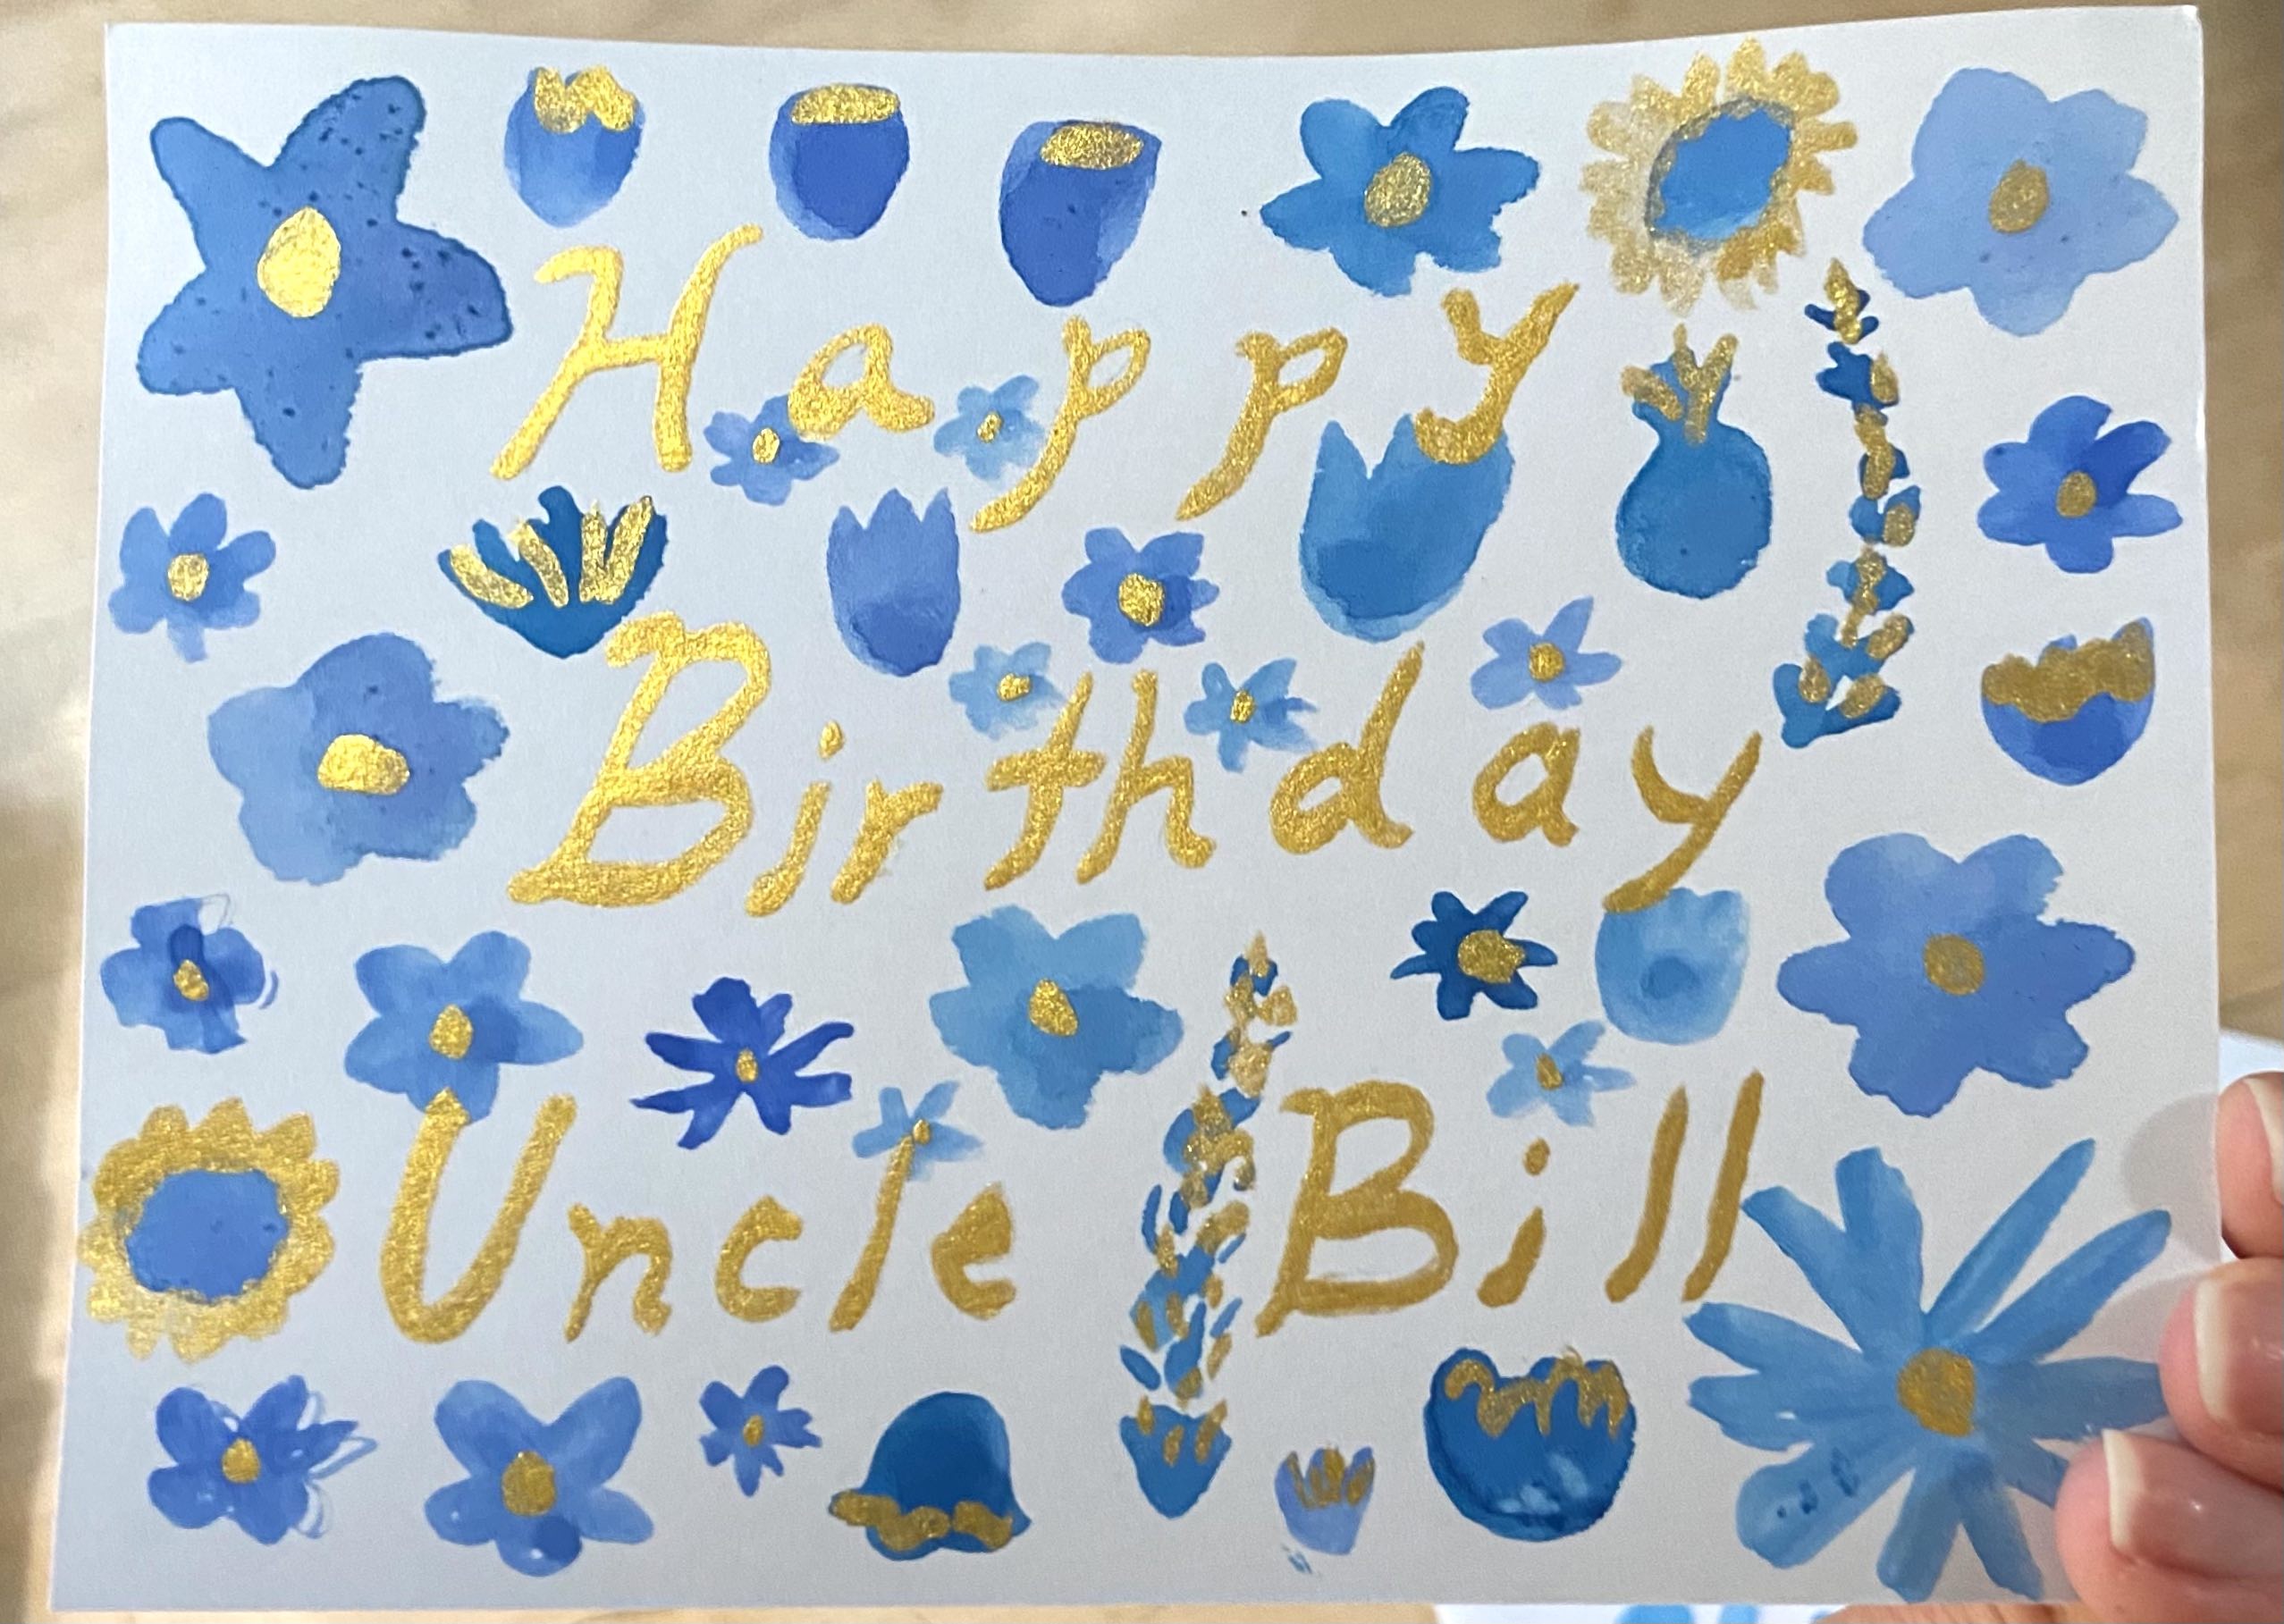 Happy
Birthday
Uncle Bill